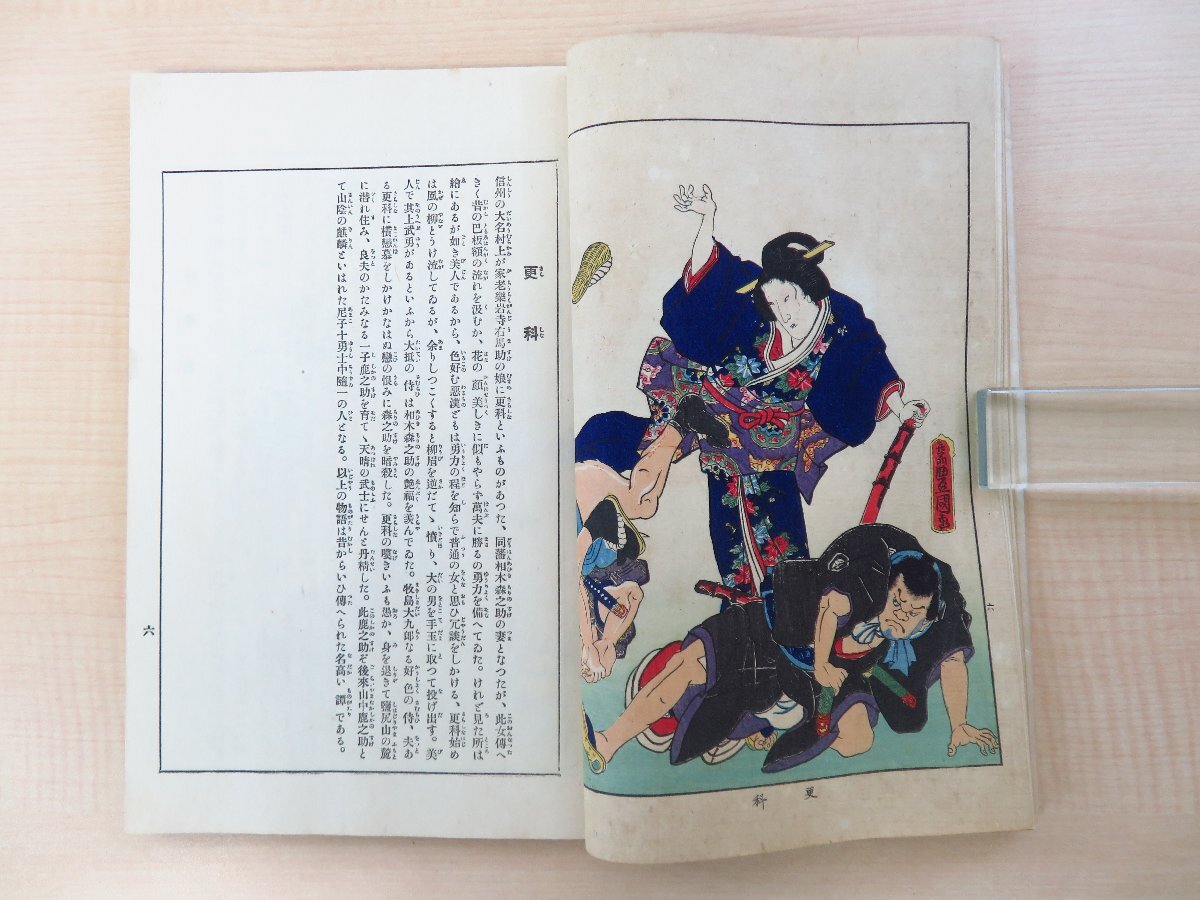 更科
信州の大名村上が家老樂岩寺右馬助の娘に更科といふものがあつた、同藩相木森之助の妻となつたが、此女傳へ
きく昔の巴板額の流れを汲むか、花の顔美しきに似もやらず萬夫に勝るの勇力を備へてゐた。けれど見た所は
繪にあるが如き美人であるから、色好む惡漢どもは勇力の程を知らで普通の女と思ひ冗談をしかける、更科始め
は風の柳とうけ流してゐるが、余りしつこくすると柳眉を逆だてゝ憤り、大の男を手玉に取つて投げ出す。美
人で其上武勇があるといふから大抵の侍は相木森之助の艶福を羨んでゐた。牧島大九郎なる好色の侍、夫あ
る更科に橫戀慕をしかけかなはぬ戀の恨みに森之助を暗殺した。更科の嘆きいふも愚か、身を退きて鹽尻山の麓
に潜れ住み、良夫のかたみなる一子鹿之助を育てゝ天晴の武士にせんと丹精した。此鹿之助ぞ後來山中鹿之助と
て山陰の麒麟といはれた尼子十勇士中随一の人となる。以上の物語は昔からいひ傳へられた名高い譚である。
六
豊国画
更科
六